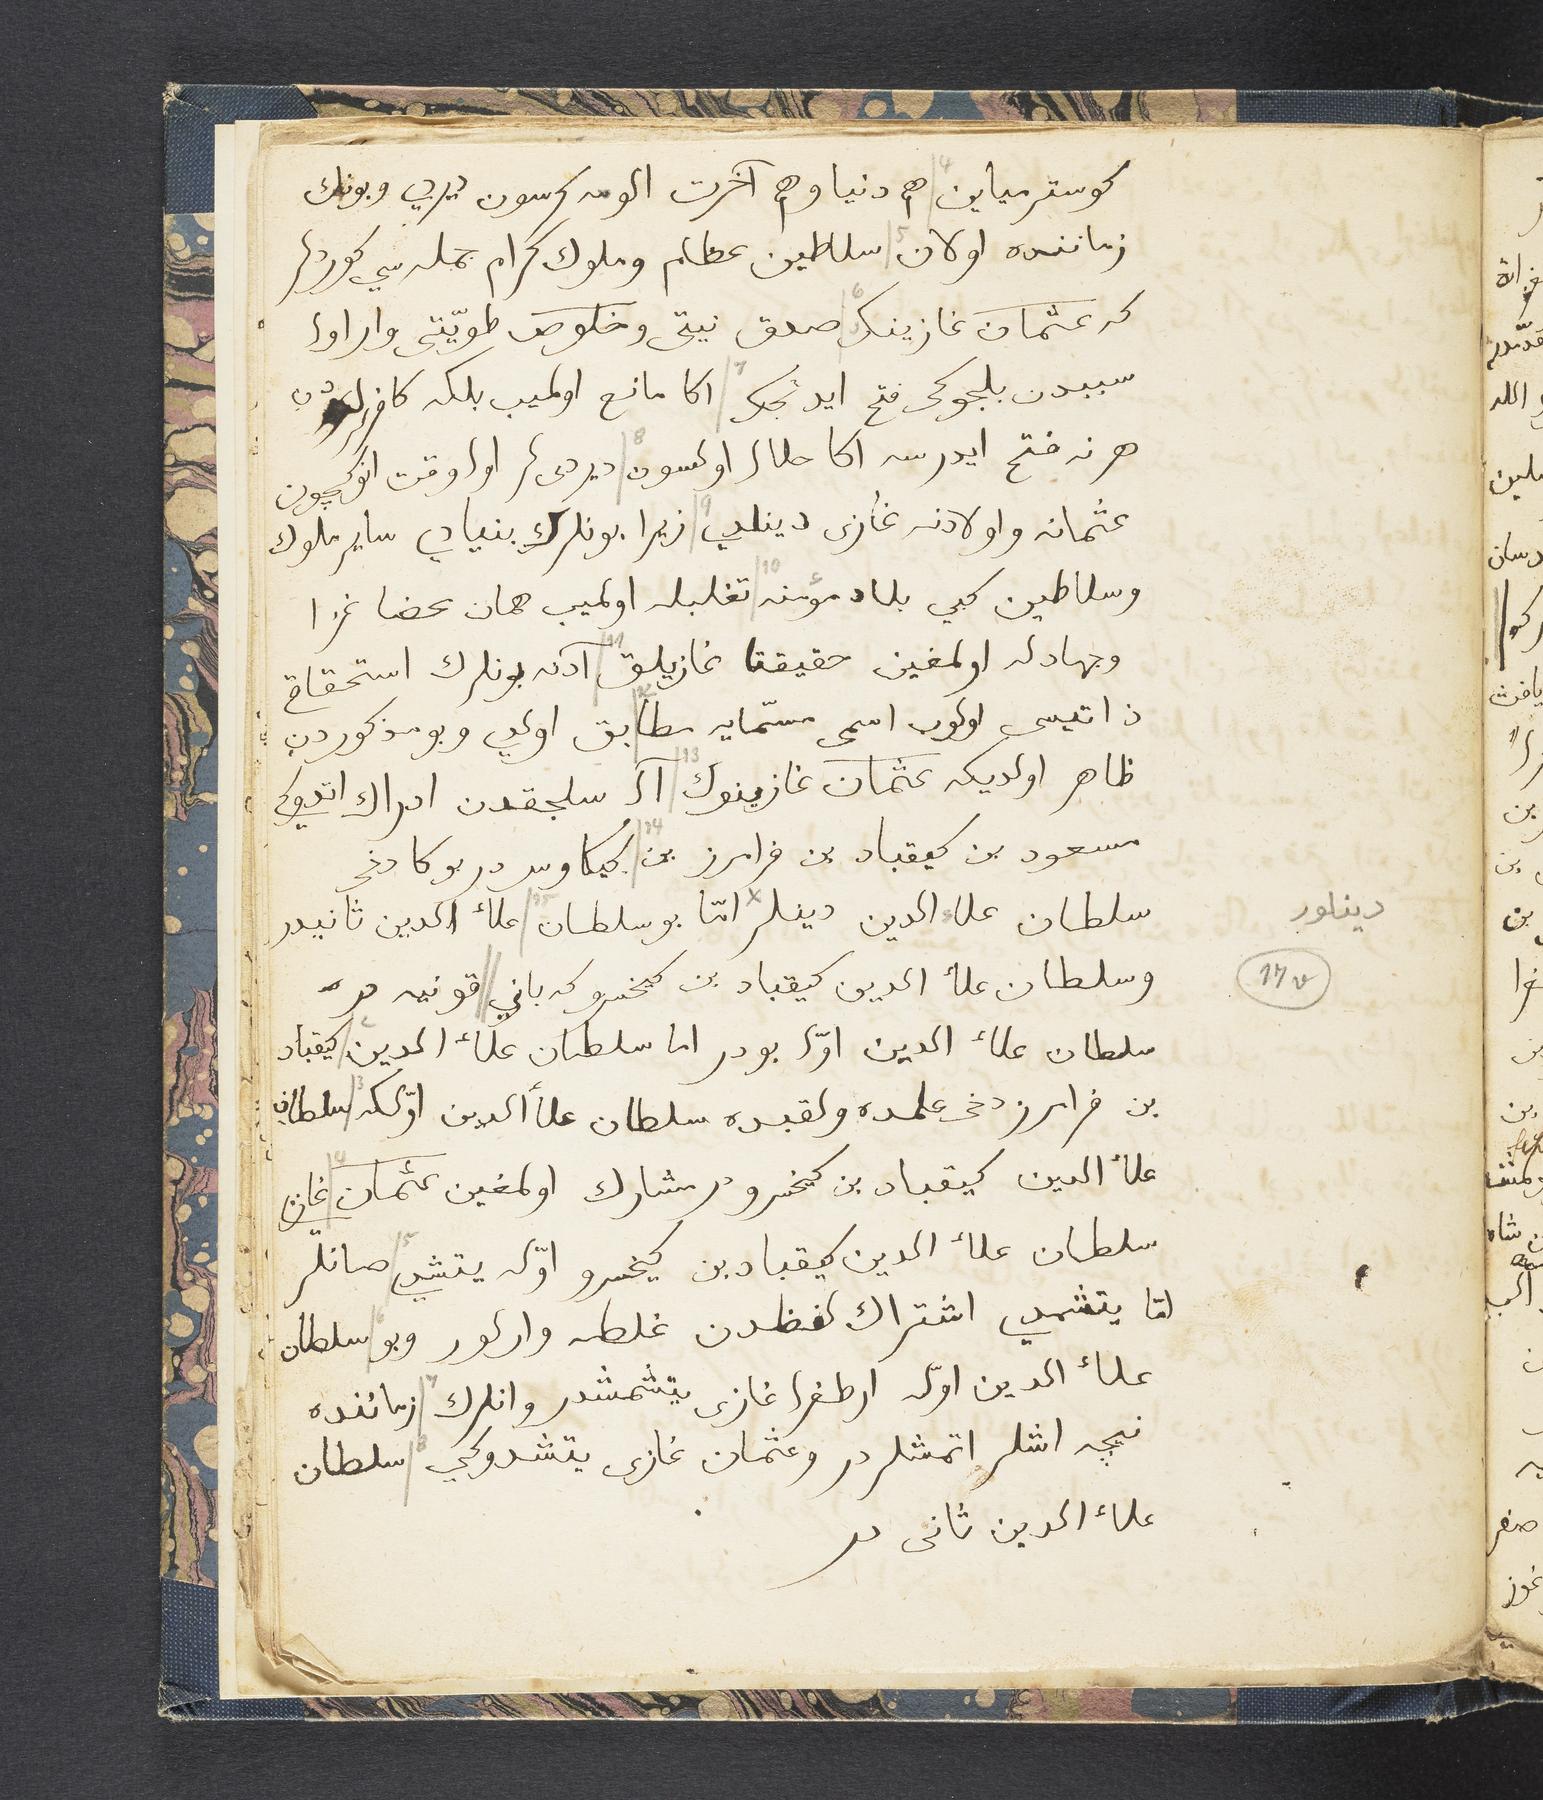 كوسترمياين هم دنيا وهم آخرت الومه كرسون ديدي وبونك
زماننده اولان سلاطين عظام وملوك كرام جمله سي كوردلر
كه عثمان غازينك صدق نيتى وخلوص طويّتى وار اول
سببدن بلجوكى فتح ايدنجك اكا مانع اولميب بلكه كافرلردن
هر نه فتح ايدرسه اكا حلال اولسون ديردى لر اول وقت انوكچون
عثمانه واولادنه غازى دينلدي زيرا بونلرك بنيادي ساير ملوك
وسلاطين كبي بلاد مؤمنه تغلبله اولميب همان محضا غزا
وجهادله اولمغين حقيقتا غازيلق آدنه بونلرك استحقاق
ذاتيسى اولوب اسمى مسمّايه مطابق اولدي وبو مذكوردن
ظاهر اولديكه عثمان غازينوك آل سلجقدن ادراك اتدوكي
مسعود بن كيقباد بن فرامرز بن كيكاوس در بوكا دخى
سلطان علاء الدين دينلر امّا بو سلطان علاء الدين ثانيدر
وسلطان علاء الدين كيقباد بن كيخسرو كه باني قونيه در
سلطان علاء الدين اوّل بودر اما سلطان علاء الدين كيقباد
بن فرامرز دخى علمده ولقبده سلطان علاء الدين اوّلكه سلطان
علاء الدين كيقباد بن كيخسرودر مشارك اولمغين عثمان غازى
سلطان علاء الدين كيقباد بن كيخسرو اوّله يتشدي صانلر
امّا يتشمدي اشتراك لفظدن غلطه وارلور وبو سلطان
علاء الدين اوّله ارطغرل غازى يتشمشدر وانلرك زماننده
نيچه اشلر اتمشلردر وعثمان غازى يتشدوكي سلطان
علاء الدين ثانى در
دينلور
17v